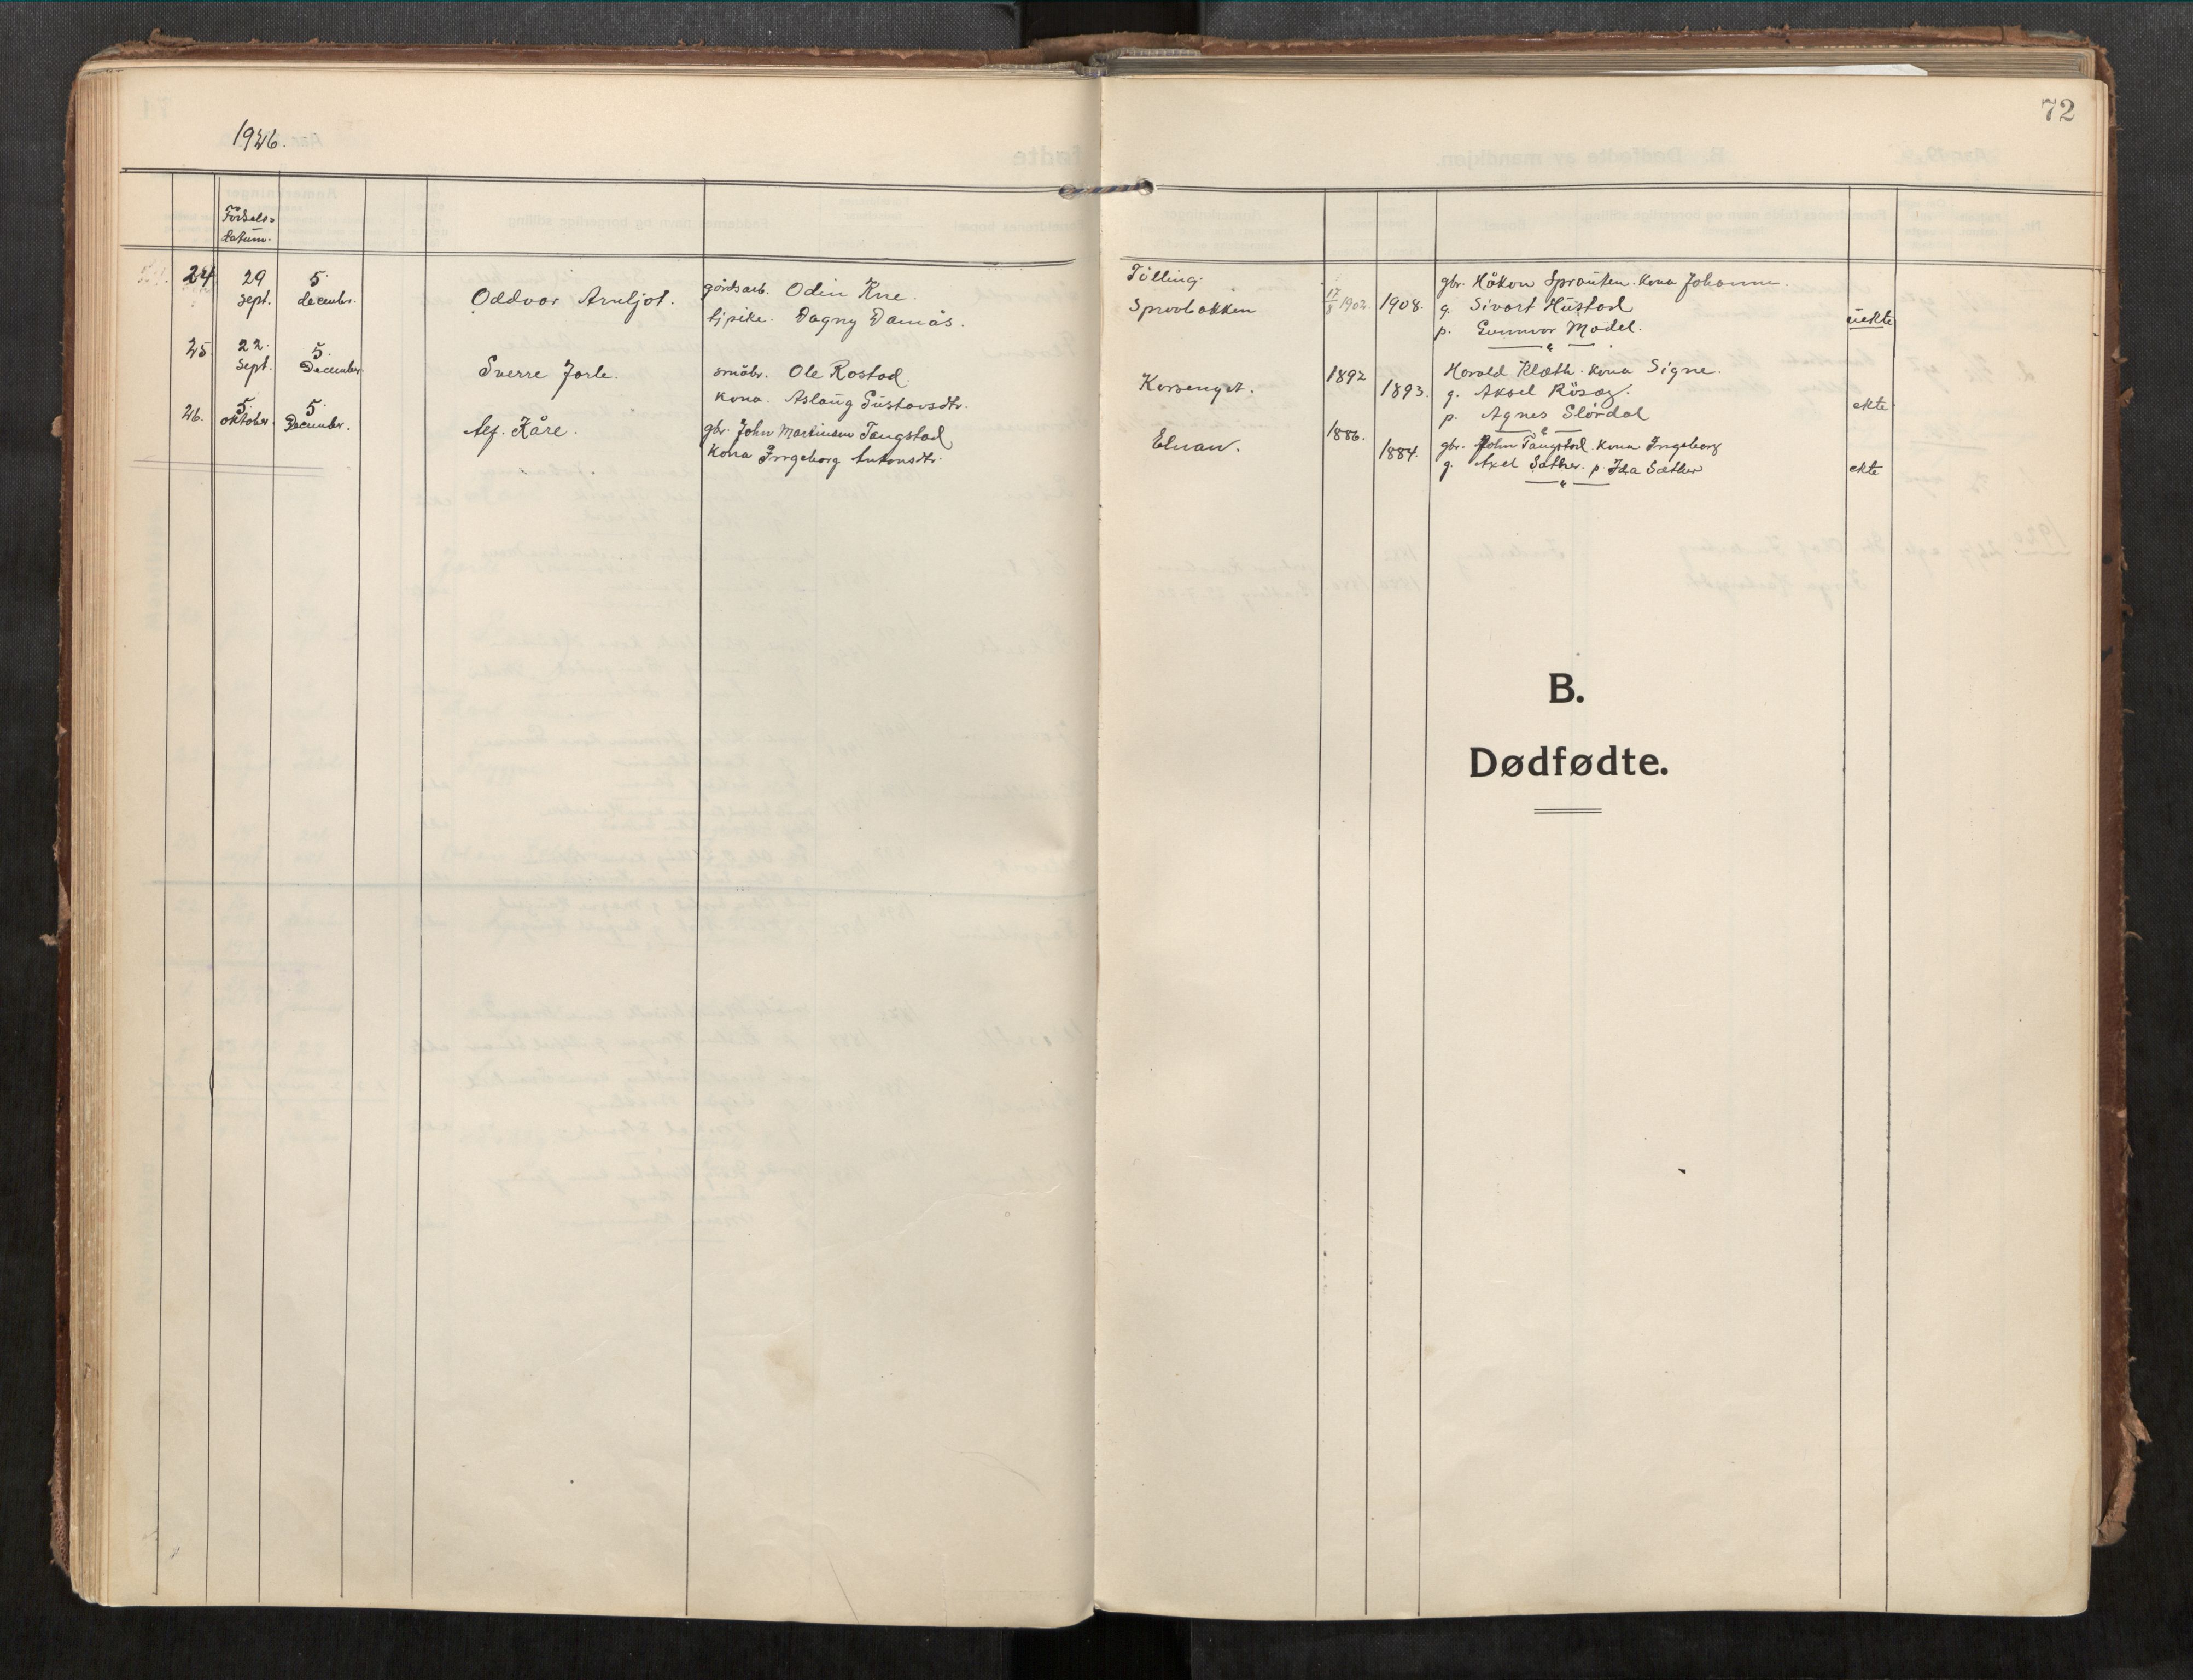 1926.
72
Fødsels=
datum.
24 29 sept. 5 decembr. Oddvar Arnljot. gårdsarb. Odin Rne.
tjpike. Dagny Damås.
25 22. sept. 5. December. Sverre Jarle. småbr. Ole Rostad.
kona. Aslaug Gustavsdtr.
26. 5. oktober. 5. December. Alf. Kåre. gbr. John Martinsen Tangstad
kona Ingeborg Antonsdtr.
Tilling. gbr. Håkon Sprauten. kona Johanne.
17/8 1902. 1908. g. Sivart Hustad
p. Gunnvor Madel. uekte
Korsenget. 1892 1893. Harald Klæth. kona Signe.
g. Aksel Rösæg.
p. Agnes Slördal ekte
Elnan. 1886. 1884. gbr. John Tangstad. kona Ingeborg
g. Axel Sæther. p. Ida Sæther ekte
B.
Dødfødte.